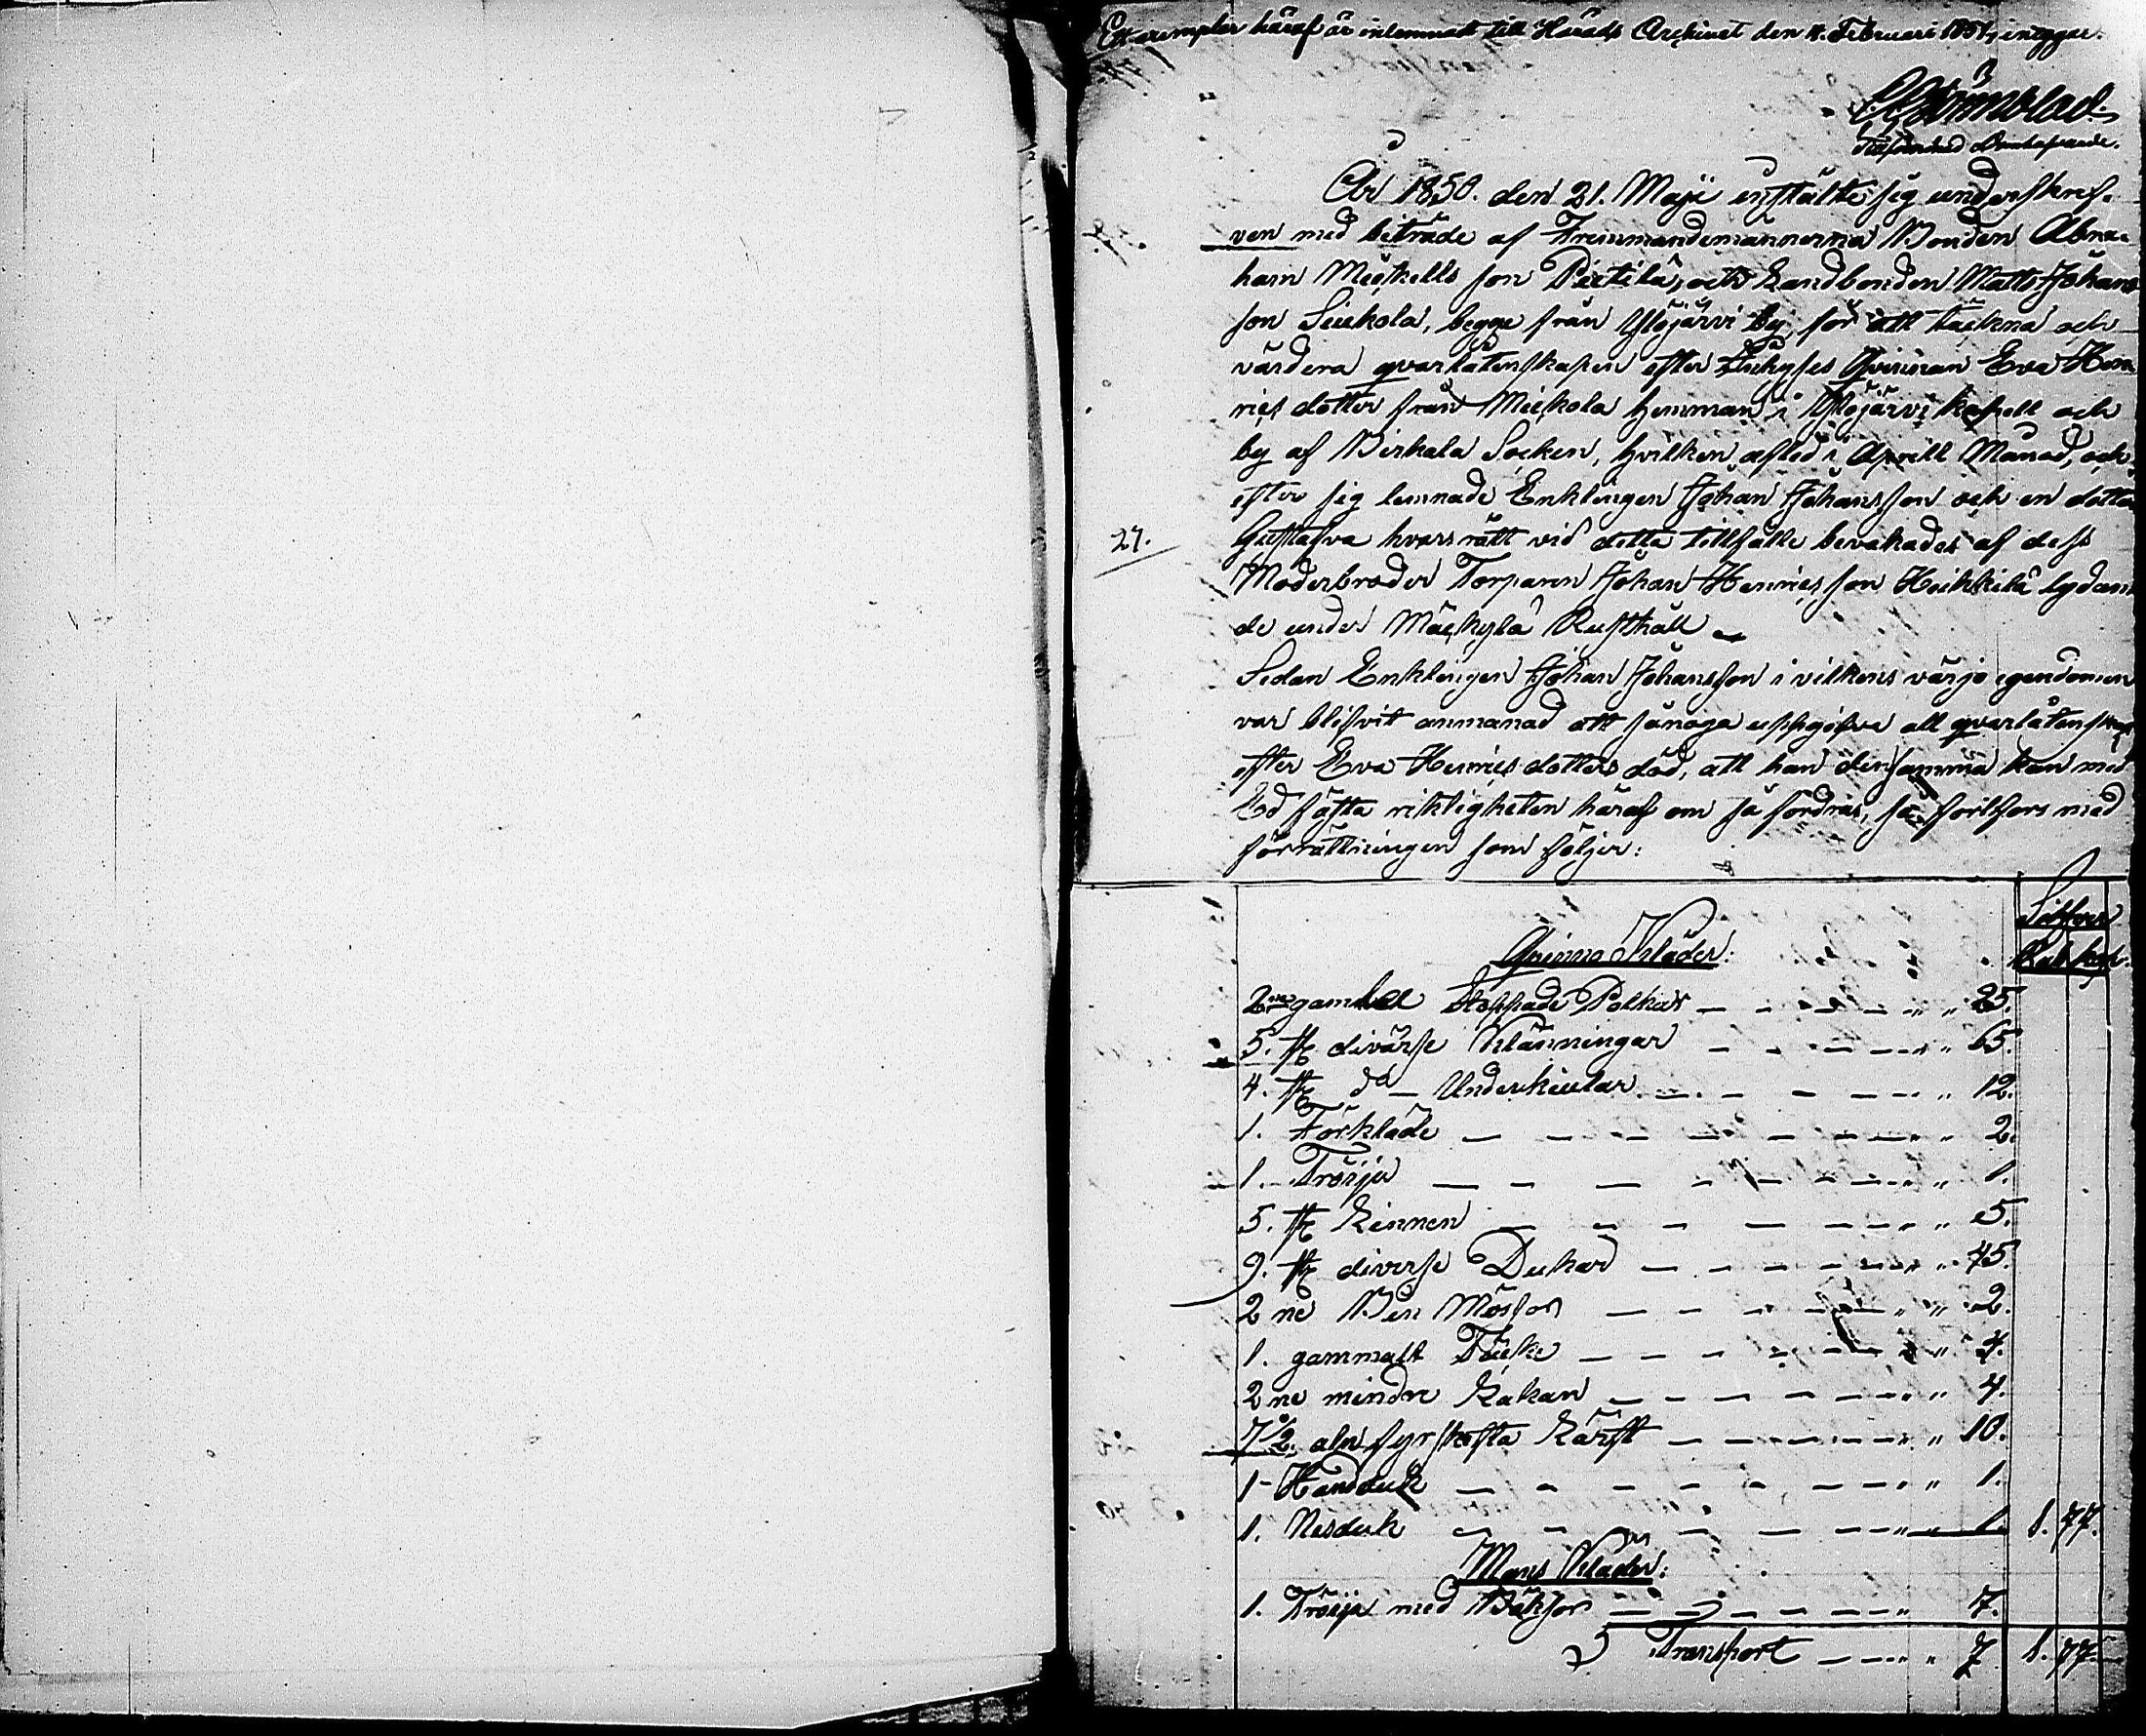 Ett exemplar häraf är inlemnatt till Härads Archivet den 11. Februari 1851, intygar.
År 1850. den 21. Maji instälte sig underskref-
ven med biträde af Fremmandemännerna Bonden Abra-
ham Michells son Pietilä, och Landbonden Matts Johans
son Siukola, begge från Ylöjärvi by, för att täckna och
värdera qvarlåtenskapen efter Inhyses Qvinnan Eva Hen-
rics dotter från Mickola hemman i Ylöjärvi kapell och
by af Birkala Socken, hvilken afled i Aprill Månad, och
efter sig lemnade Enklingen Johan Johansson och en dotter
27.
Gustafva hvars rätt vid detta tillfälle bevakades af dess
Moderbroder Torparen Johan Henrics son Heikkilä lydan
de under Mäckylä Rusthåll
Sedan Enklingen Johan Johansson i vilkens värjo egendomen
var blifvit anmanad att sånoga uppgifva all qvarlåtenskap
efter Eva Henrics dotters död, att han densamma kan med
Ed fästa riktigheten häraf om så fordras, så fortfors med
förrättningen som följer:
Silfver
Qvinno Kläder: Rub. kop.
2ne gamla stoppade Polkar — — — — " " 25.
5. st. divärse Klänningar — — — — " " 65.
4. st. do — Underkiutar — — — — " 12.
1. Förkläde — — — — — " " 2.
1. Tröija — — — — — " " 1.
5. st. Linnen — — — — — " " 5.
9. st. diverse Dukar — — — — " " 45.
2 ne Bin Mössor — — — — " " 2.
1. gammalt Täcke — — — — " 4.
2 ne mindre Lakan — — — — " " 4.
7 1/2. aln fyrskefta Lärft — — — — " " 10.
1 - Handduk — — — — — " " 1.
1. Nesduk — — — — — " " 1. 1. 77.
Mans Kläder:
1. Tröija med Böxsor — — — — " 7.
Transport — — — " 7 1. 77.